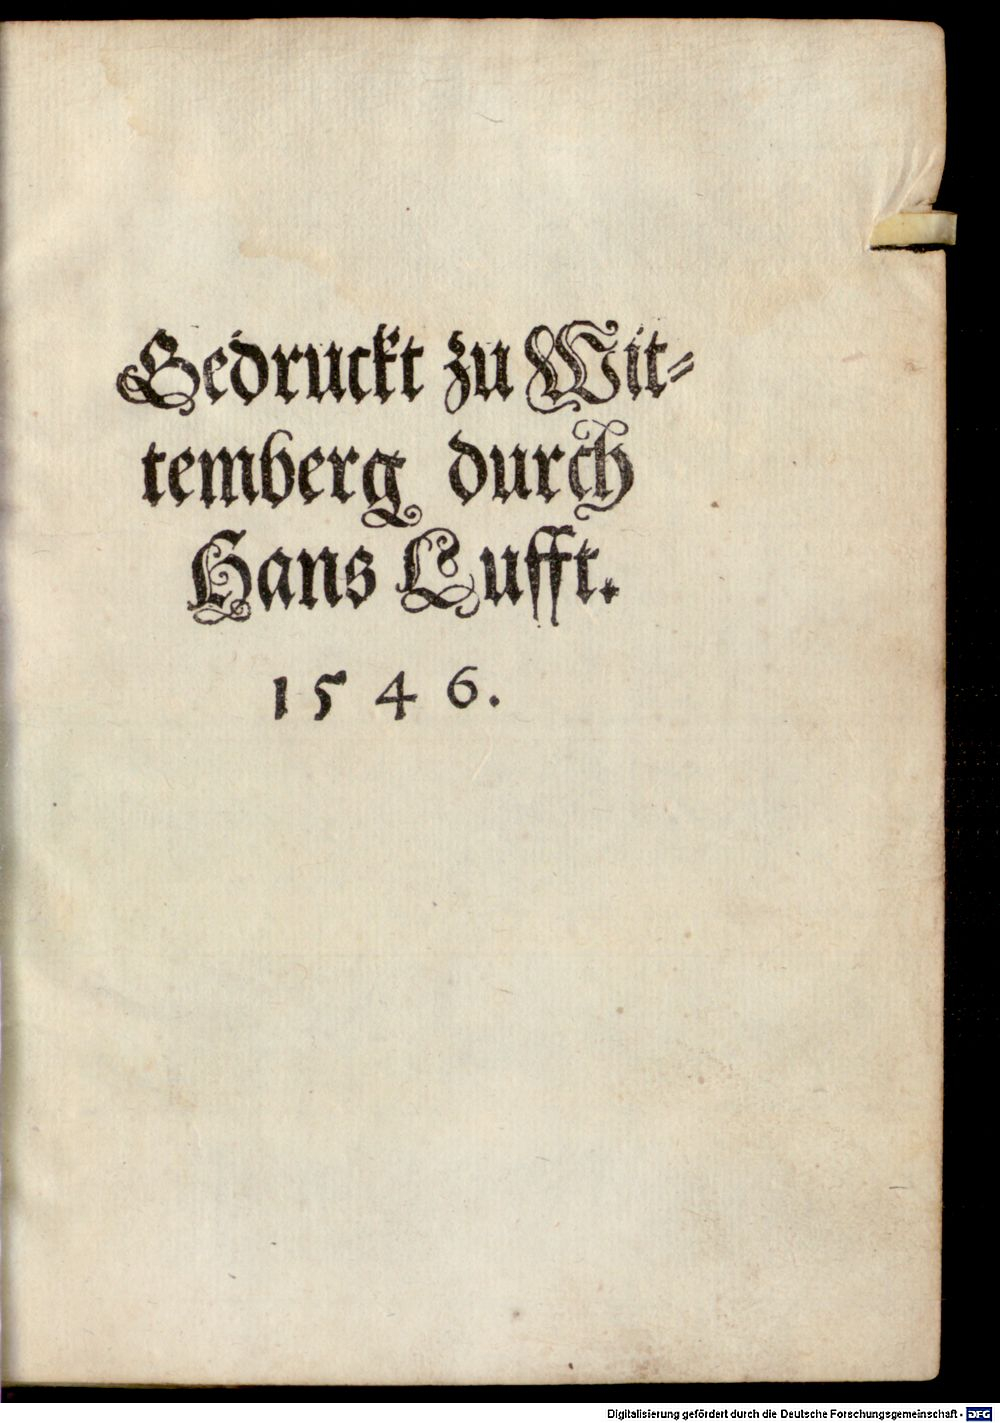 Gedruckt zu Wit⸗
temberg durch
Hans Lufft.
1546.
Digitalisierung gefördert durch die Deutsche Forschungsgemeinschaft - DFG